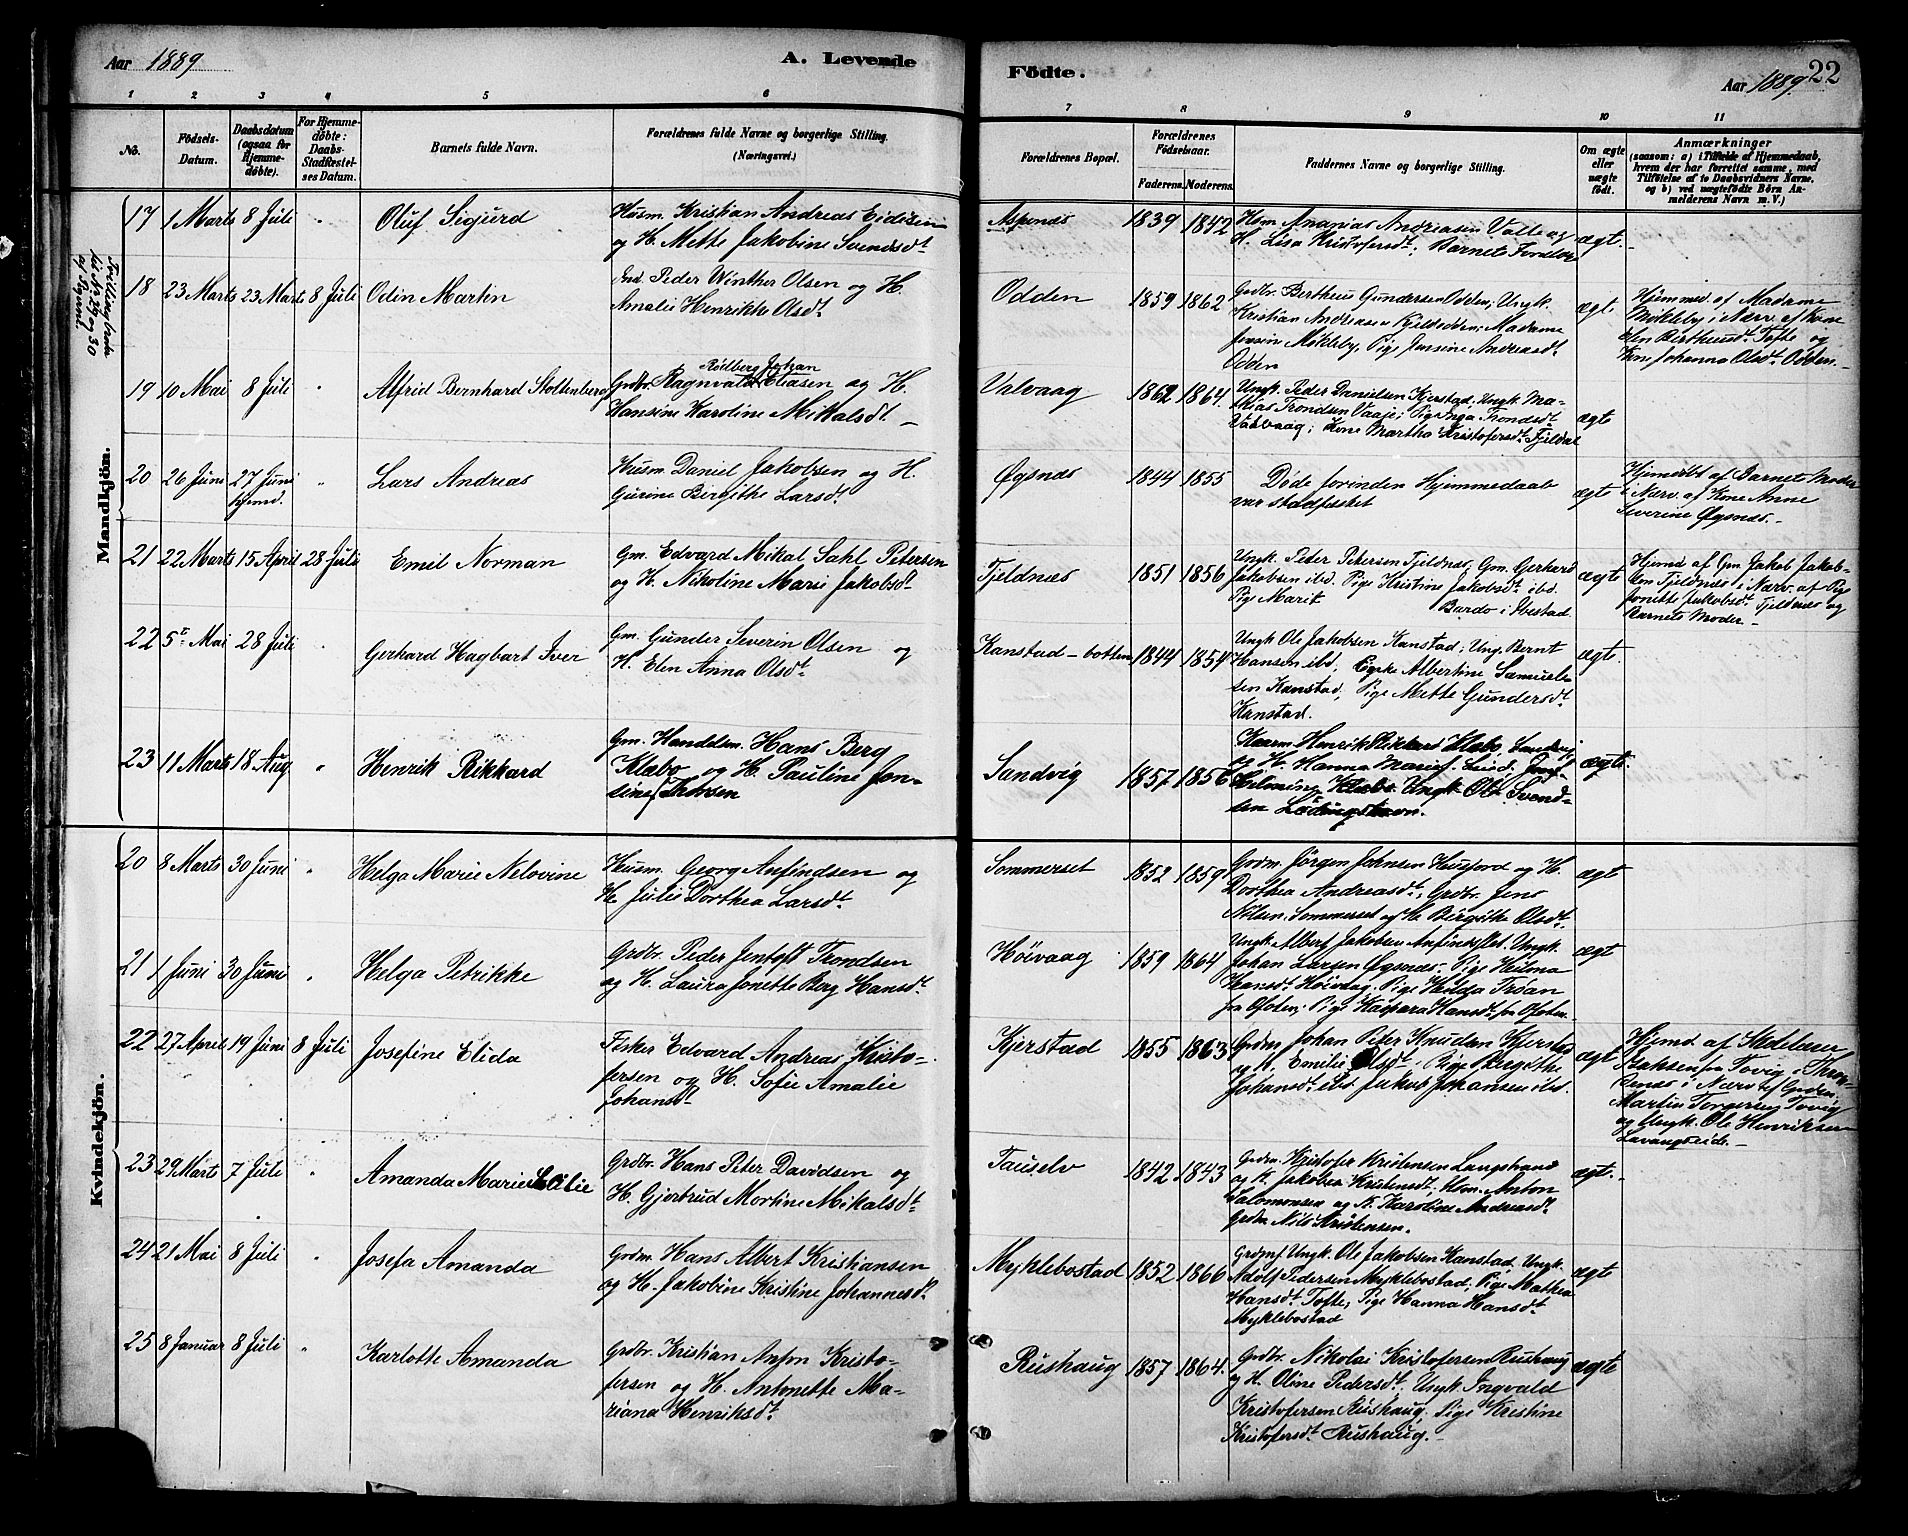 Aar 1889
A. Levende
Födte.
Aar 1889
22
1 2 3 4 5 6 7 8 9 10 11
No.
Födsels-
Datum.
Daabsdatum
(ogsaa for
Hjemme-
döbte).
For Hjemme-
döbte:
Daabs-
Stadfæstel-
ses Datum.
Barnets fulde Navn.
Forældrenes fulde Navne og borgerlige Stilling.
(Næringsvei.)
Forældrenes Bopæl.
Forældrenes
Födselsaar.
Faderens. Moderens.
Faddernes Navne og borgerlige Stilling.
Om ægte
eller
uægte
födt.
Anmærkninger
(saasom: a) i Tilfælde af Hjemmedaab,
hvem der har forrettet samme, med
Tilföielse af to Daabsvidners Navne,
og b) ved uægtefödte Börn An-
melderens Navn m. V.)
Mandkjön.
17 1 Marts 8 Juli " Oluf Sigurd
Husm. Kristian Andreas Eidissen
og H. Mette Jakobine Svendsdt
Aspenæs 1839 1842
Hsm. Ananias Andreasen Valle og
H. Lisa Kristofersdt; Barnets Forældre
ægt. -
18 23 Marts 23 Marts 8 Juli Odin Martin
Ind. Peder Winther Olsen og H.
Amalie Henrikke Olsdt
Odden 1859 1862
Grdbr. Bertheus Gundersen Odden; Ungk.
Kristian Andreasen Kjeldsodden; Madame
Jensin Mökleby, Pige Jensine Andreasdt
Odden
ægt
Hjemmed. af Madame
Mökleby i Nærv. af Kone
Elen Bertheusdt Tofte og
Kone Johanna Olsdt Odden. -
19 10 Mai 8 Juli " Alfrid Bernhard Stoltenberg
Rödberg Johan
Grdbr. Ragnvald Eliasen og H.
Hansine Karoline Mikalsdt -
Valvaag 1862 1864.
Ungk. Peder Danielsen Kjerstad, Ungk. Ma-
thias Trondsen Vaaje; Pige Inga Trondsdt
Valvaag; Kone Martha Kristofersdt Fjeldal
ægte
20 26 Juni 27 Juni
hjemd. " Lars Andreas
Husm. Daniel Jakobsen og H.
Gurine Bergithe Larsdt
Øgsnæs 1844 1855
Döde forinden Hjemmedaab
var stadfæstet
ægte
Hjemdöbt af Barnets Moder
i Nærv. af Kone Anne
Severine Øgsnæs. -
21 22 Marts 15 April 28 Juli Emil Norman
Gm. Edvard Mikal Dahl Petersen
og H. Nikoline Marie Jakobsdt
Fjeldnæs 1851 1856
Ungk. Peter Petersen Fjeldnæs, Gm. Gerhard
Jakobsen ibd. Pige Kristine Jakobsdt ibd.
Pige Marit Bardo i Ibestad.
ægte
Hjemd af Gm. Jakob Jakob-
sen Fjeldnæs i Nærv. af Pige
Jonette Jakobsdt Fjeldnæs og
Barnets Moder. -
22 5te Mai 28 Juli " Gerhard Hagbart Iver
Gm. Gunder Severin Olsen og
H. Elen Anna Olsdt
Kanstad-botten 1844 1854
Ungk Ole Jakobsen Kanstad; Ung. Bernt
Hansen ibd; Enke Albertine Samuel-
sen Kanstad; Pige Mette Gundersdt
Kanstad.
ægte.
23 11 Marts 18 Aug " Henrik Rikkard
Gm. Handelsm. Hans Berg
Klæbo og H. Pauline Jen-
sine Thoresen
Sandvig 1857 1856
Henrik Rikkart Klæbo Sandvig
og H. Hanna Marie
Klæbo. Ungk. Ole Svend-
sen Lödingshavn.
ægte.
Kvindekjön.
20 8 Marts 30 Juni " Helga Marie Nelovine
Husm. Georg Anfindsen og
H. Julie Dorthea Larsdt
Sommerset 1852 1859
Grdm. Jörgen Johnsen Husfjord og H.
Dorthea Andreasdt; Grdbr. Jens
Nilsen Sommerset og H. Bergitte Olsdt.
ægt
21 1 Juni 30 Juni " Helga Petrikke
Grdbr. Peder Jentoft Trondsen
og H. Laura Jonette Berg Hansdt
Höivaag 1859 1864
Ungk. Albert Jakobsen Ungk.
Johan Larsen Øgsnæs. Pige Helma
Hansdt Höivaag. Pige Hedda Troan
fra Ofoten; Pige Kaspara Hansdt fra Ofoten.
ægt
22 27 April 19 Juni 8 Juli Josefine Elida
Fisker Edvard Andreas Kristo-
fersen og H. Sofie Amalie
Johansdt
Kjerstad 1855 1863
Grdm. Johan Peter Knudsen Kjerstad
og H. Emilie Olsdt; Pige Bergithe
Johansdt ibd. Jakob Johansen ibd.
ægt
Hjemd. af Skolelærer
Isaksen fra Tovig i Thron-
denæs i Nærv. af Grdbr.
Martin Torgersen Tovig
og Ungk. Ole Henriksen
Lavangseide. -
23 29 Marts 7 Juli " Amanda Marie Lovise
Grdbr. Hans Peter Davidsen og
H. Gjertrud Mortine Mikalsdt
Tauselv 1842 1843
Grdm. Kristofer Kristensen Langstrand
og K. Jakobea Kristensdt, Hsm. Anton
Salomonsen og K. Karoline Andreasdt
Grdm. Nils Kristensen.
ægt. -
24 21 Mai 8 Juli " Josefa Amanda
Grdm. Hans Albert Kristiansen
og H. Jakobine Kristine Johannesdt
Myklebostad 1852 1866
Grdmf. Ungk. Ole Jakobsen Kanstad, Ungk.
Adolf Pedersen Myklebostad; Pige Mathea
Hansdt Tofte; Pige Hanna Hansdt
Myklebostad
ægte
25 8 Januar 8 Juli " Karlotte Amanda
Grdbr. Kristian Anton Kristo-
fersen og H. Antonette Ma-
riana Henriksdt
Rushaug 1857 1864.
Grdbr. Nikolai Kristofersen Rushaug
og H. Oline Pedersdt. Ungk. Ingvald
Kristofersen Rushaug; Pige Kristine
Kristofersdt Rushaug. -
ægte